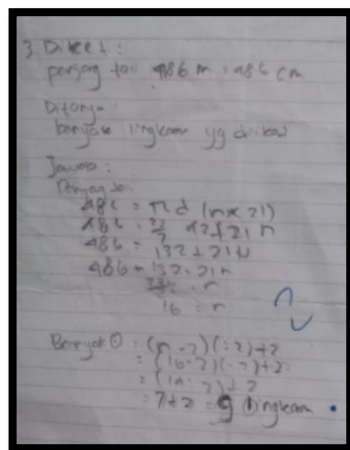 3. Diket :
panjang tali 486 m = 486 cm
Ditanya :
banyak lingkaran yg dibuat
Jawab :
Panjang
486 = π d (n × 21)
486 = 22/7 42 + 21 n
486 = 132 + 21 n
486 - 132 = 21 n
= n
16 = n
Banyak O = (n - 2) (: 2) + 2
= (16 - 2) (: 2) + 2
= (14 : 2) + 2
= 7 + 2 = 9 lingkaran